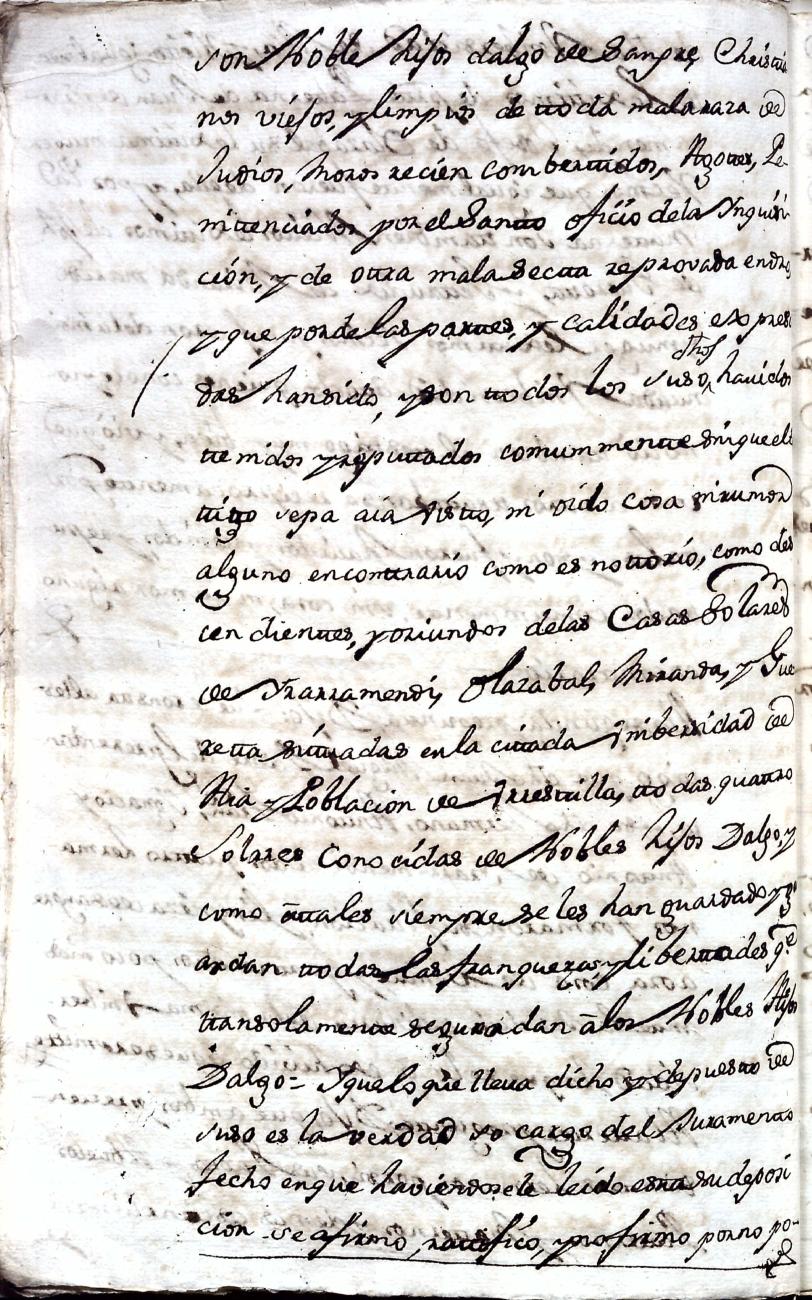 son Noble hijos dalgo de Sangre, Christia
nos viejos, y limpios de ttoda mala raza de
Judios, Moros recien combertidos, Agotes, Pe
nitenciados por el Santto oficio de la Ynquisi
ción, y de otra mala Sectta reprovada en dro
y que por de las parttes, y calidades expresa
das han sido, y son ttodos los suso dhos havidos
ttenidos y reputtados comunmentte sin que el
ttigo sepa aia visto, ni oido cosa ni rumor
alguno en conttrario como es nottorio, como des
cendienttes, y oriundos de las Casas Solares
de Yrarramendi, Olazabal, Miranda, y Gue
retta situadas en la cittada Vnibersidad de
Aia y Poblacion de Vrrestilla, ttodas quattro
Solares Conocidas de Nobles hijos Dalgo, y
como a ttales siempre se les han guardado y gu
ardan ttodas las franquezas y liberttades q.e
ttan solamentte se guardan a los Nobles Hijos
Dalgo = Y que lo que lleva dicho y depuestto de
suso es la verdad so cargo del Juramentto
fecho en que haviendosele leido estta su deposi
ción se afirmo, rattifico, y no firmo por no po-